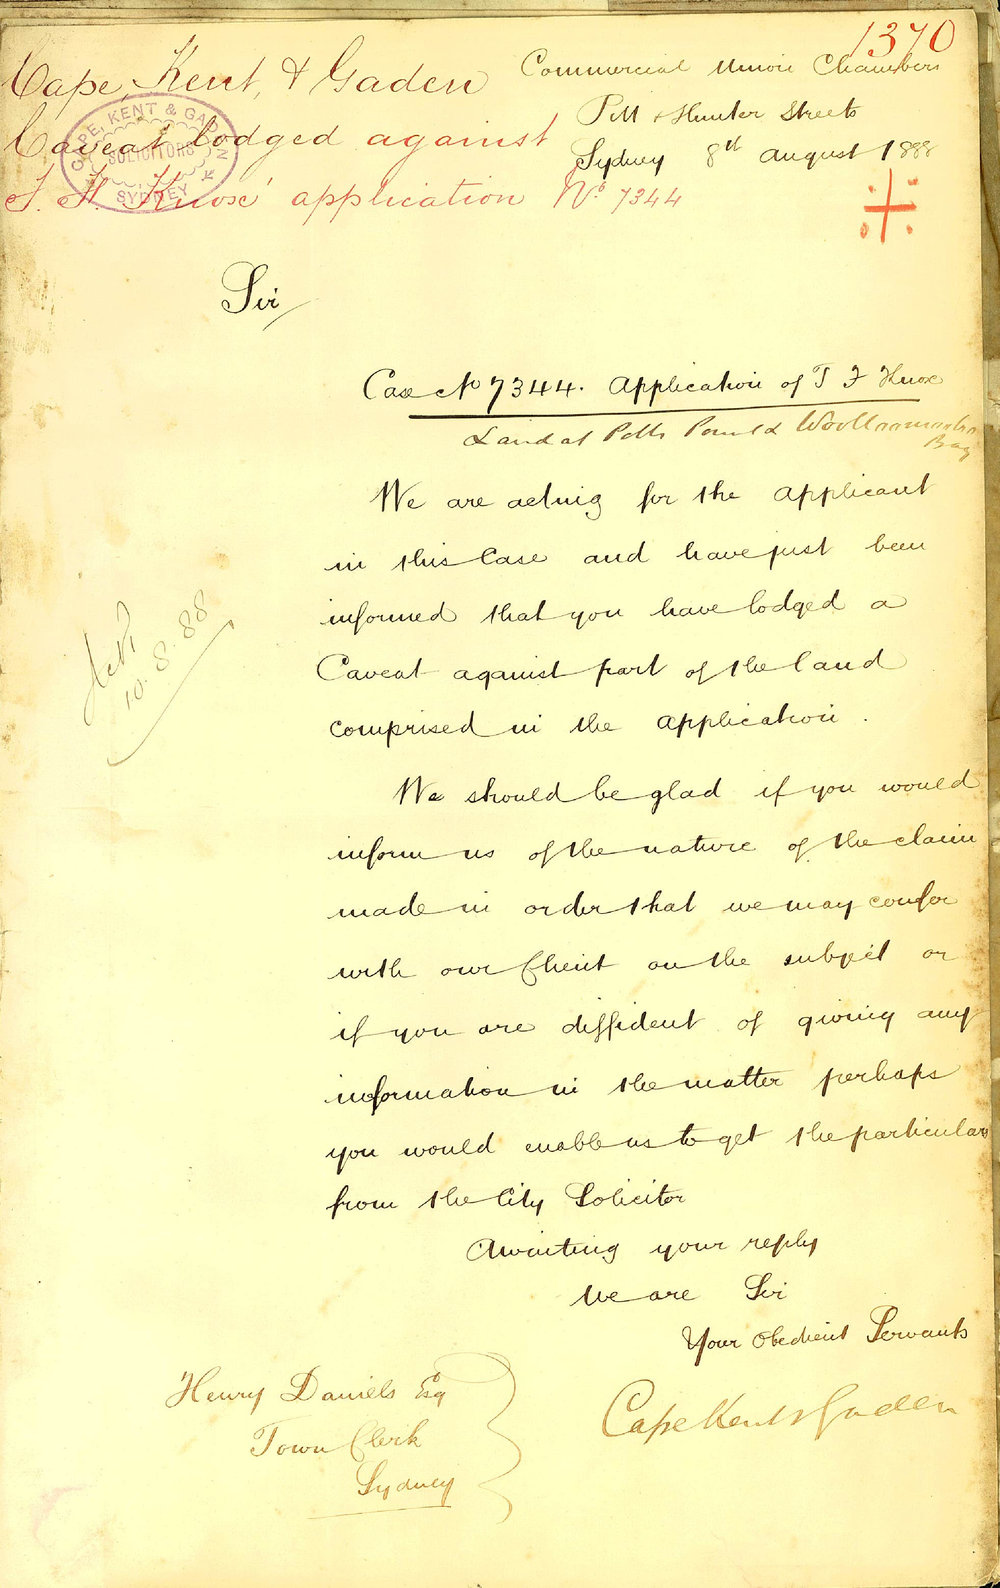 1370
Cape, Kent, & Gaden
Caveat lodged against
T. F. Knox' application No. 7344
CAPE, KENT & GADEN
SOLICITORS
SYDNEY
Commercial Union Chambers
Pitt & Hunter Streets
Sydney 8th August 1888
Sir
Case No 7344. Application of T F Knox
Land at Potts Point & Woolloomooloo
Bay
We are acting for the applicant
in this Case and have just been
informed that you have lodged a
Caveat against part of the land
comprised in the application.
We should be glad if you would
inform us of the nature of the claim
made in order that we may confer
with our Client on the subject or
if you are diffident of giving any
information in the matter perhaps
you would enable us to get the particulars
from the City Solicitor
Awaiting your reply
We are Sir
Your obedient Servants
Cape Kent & Gaden
Henry Daniels Esq
Town Clerk
Sydney
10.8.88